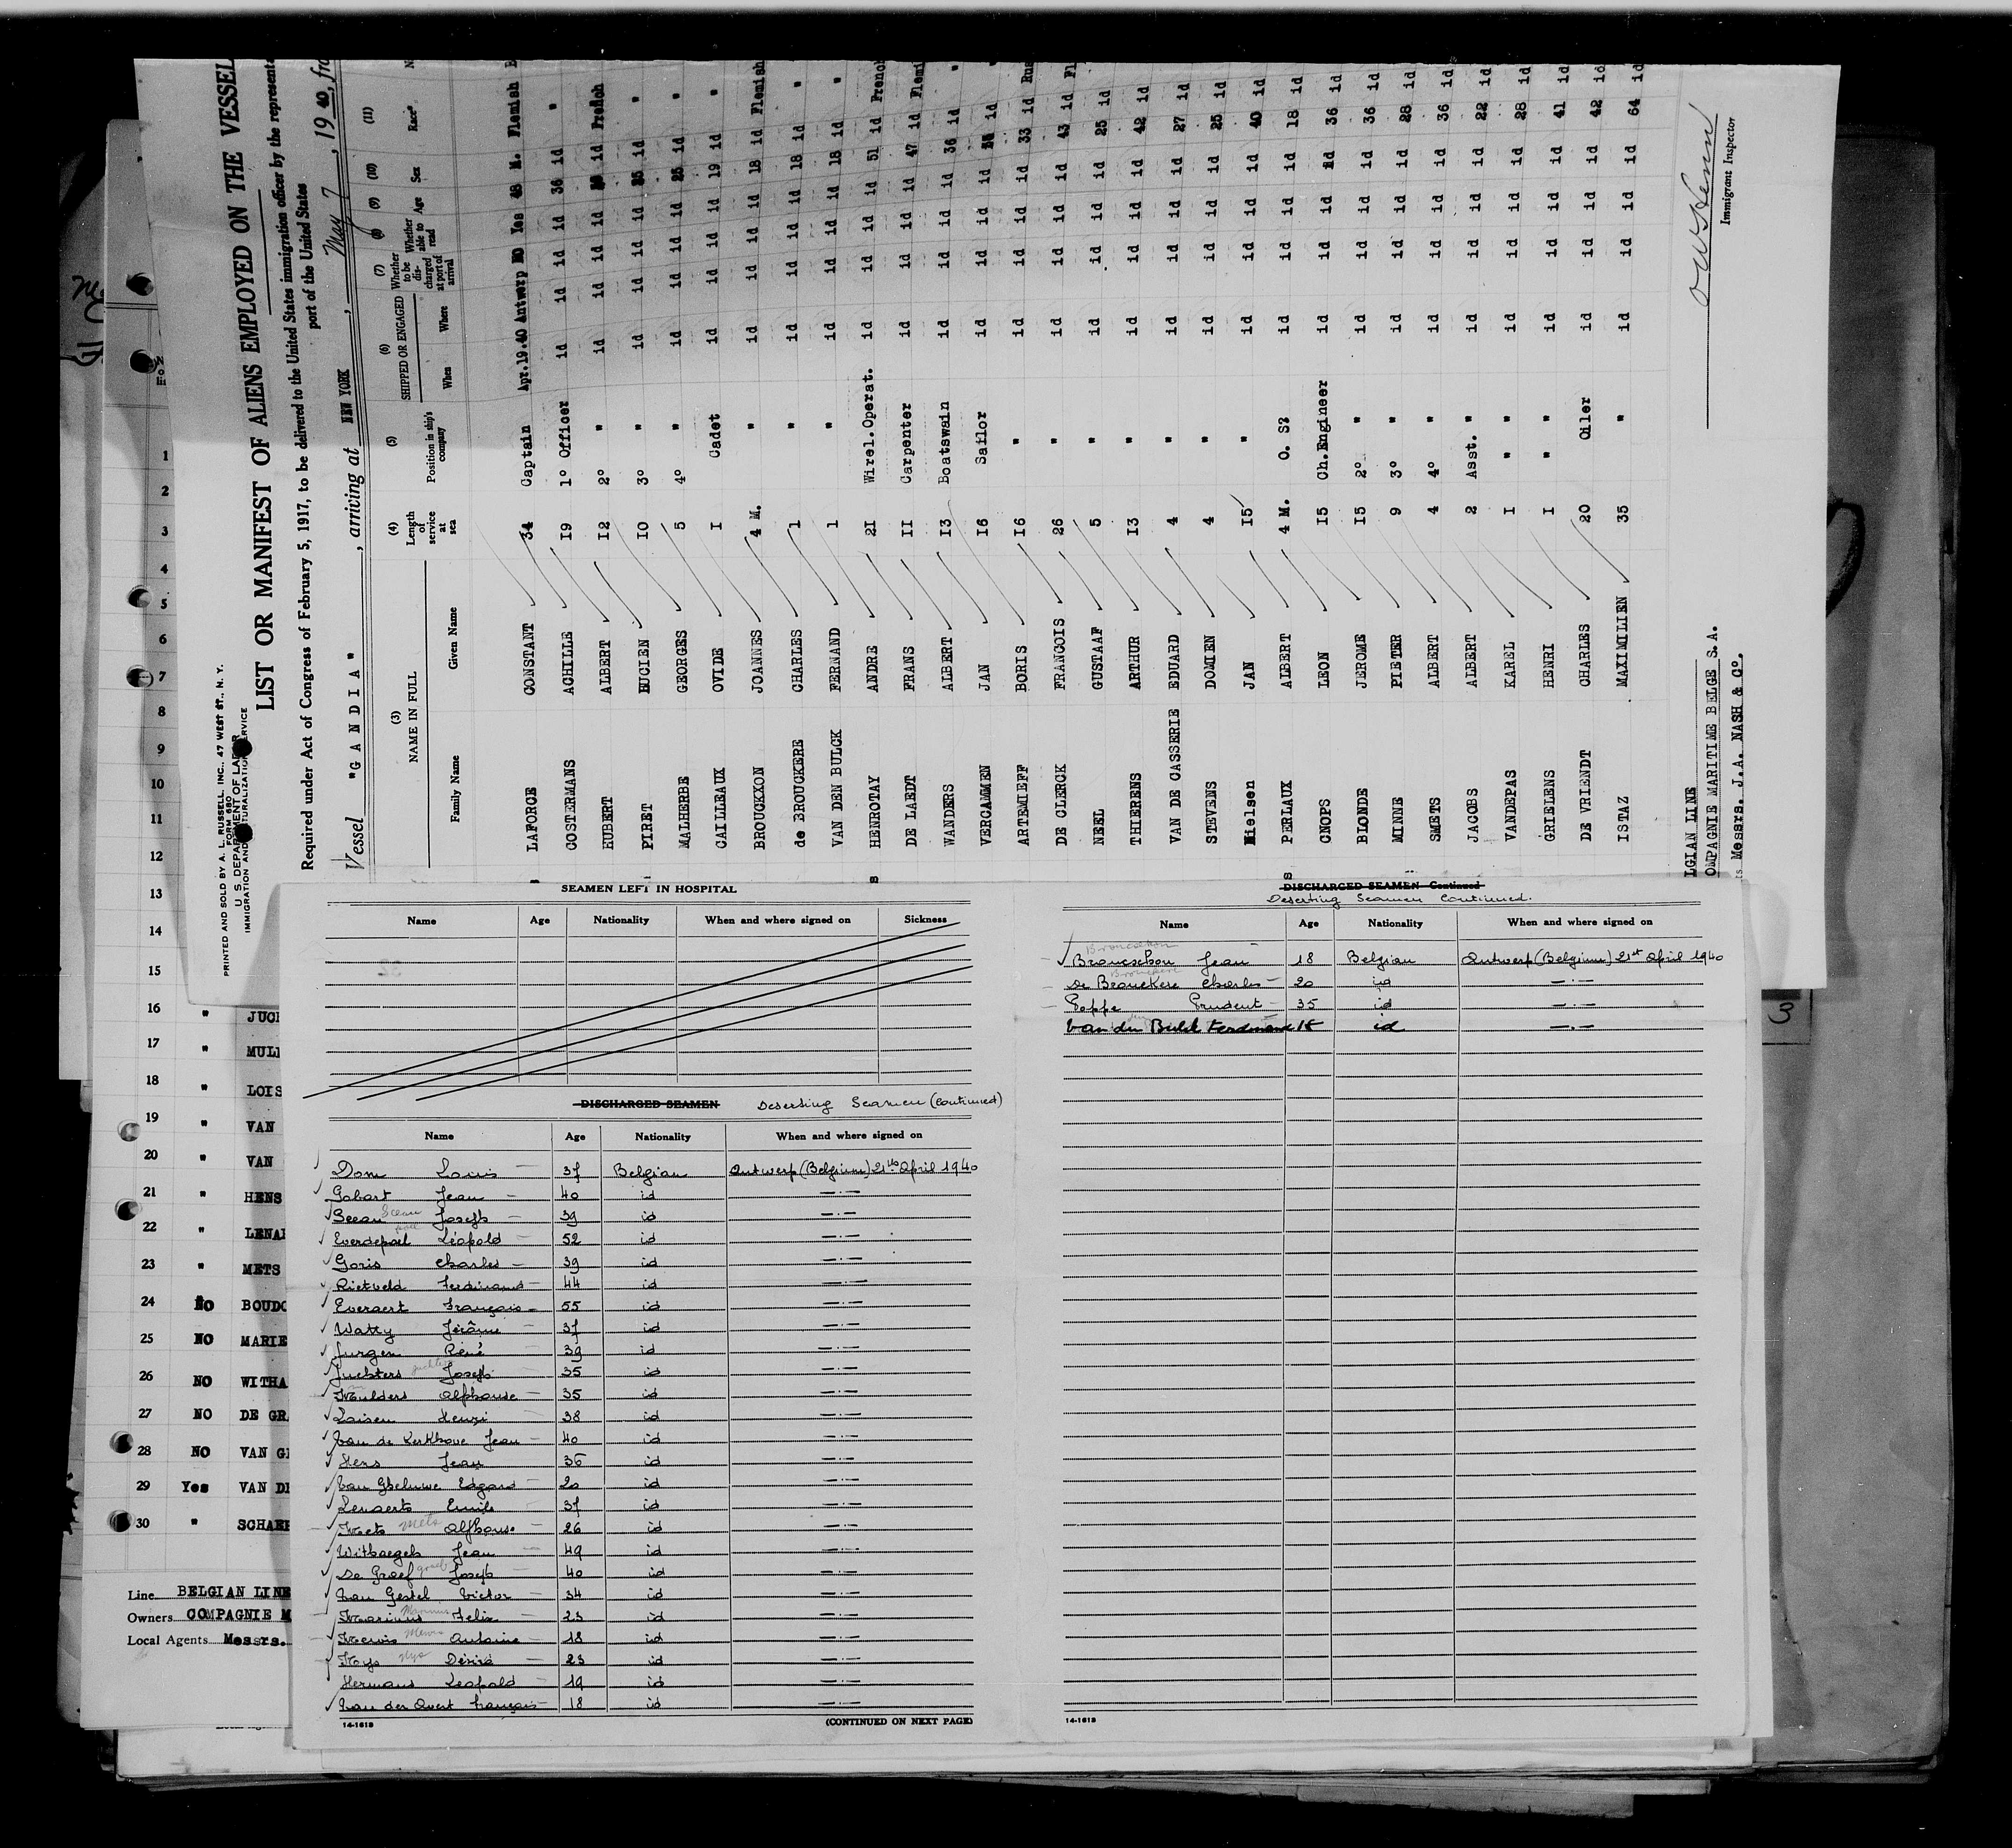 PRINTED AND SOLD BY A. L. RUSSELL, INC., 47 WEST ST., N. Y.
FORM 680
U. S. DEPARTMENT OF LABOR
IMMIGRATION AND NATURALIZATION SERVICE
LIST OR MANIFEST OF ALIENS EMPLOYED ON THE VESSEL
Required under Act of Congress of February 5, 1917, to be delivered to the United States immigration officer by the representa
port of the United States
Vessel "GANDIA", arriving at NEW YORK, May 7, 1940, fro
(3) (4) (5) (6) (7) (8) (9) (10) (11)
NAME IN FULL Length of service at sea Position in ship's company SHIPPED OR ENGAGED Whether to be discharged at port of arrival Whether able to read Age Sex Race*
Family Name Given Name When Where
LAFORCE CONSTANT 34 Captain Apr.19.40 Antwerp NO Yes 48 M. Flemish
COSTERMANS ACHILLE 19 1° Officer id id id 36 id "
HUBERT ALBERT 12 2° " id id id id French
PIRET LUCIEN 10 3° " id id id 25 id "
MALHERBE GEORGES 5 4° " id id id 25 id "
CAILLEAUX OVIDE I Cadet id id id 19 id "
BROUCKXON JOANNES 4 M. " id id id 18 id Flemish
de BROUCKERE CHARLES 1 " id id id 18 id "
VAN DEN BULCK FERNAND 1 " id id id 18 id "
HENROTAY ANDRE 21 Wirel.Operat. id id id id 51 id French
DE LAEDT FRANS II Carpenter id id id id 47 id Flemi
WANDERS ALBERT 13 Boatswain id id id id 36 id "
VERCAMMEN JAN 16 Sailor id id id id id "
ARTEMIEFF BORIS 16 " id id id id 33 id Rus
DE CLERCK FRANCOIS 26 " id id id id 43 id Fl
NEEL GUSTAAF 5 " id id id id 25 id
THIERENS ARTHUR 13 " id id id id 42 id
VAN DE CASSERIE EDUARD 4 " id id id id 27 id
STEVENS DOMIEN 4 " id id id id 25 id
Nielsen JAN 15 " id id id id 40 id
PERLAUX ALBERT 4 M. O. S? id id id id 18 id
CNOPS LEON 15 Ch.Engineer id id id id 36 id
BLONDE JEROME 15 2° " id id id id 36 id
MINNE PIETER 9 3° " id id id id 28 id
SMETS ALBERT 4 4° " id id id id 36 id
JACOBS ALBERT 2 Asst. " id id id id 22 id
VANDEPAS KAREL I " " id id id id 28 id
GRIELENS HENRI I " " id id id id 41 id
DE VRIENDT CHARLES 20 Oiler id id id id 42 id
ISTAZ MAXIMILIEN 35 " id id id id 64 id
LGIAN LINE
OMPAGNIE MARITIME BELGE S. A.
Messrs. J.A. NASH & C°.
Immigrant Inspector
1
2
3
4
5
6
7
8
9
10
11
12
13
14
15
16 " JUCH
17 " MUL
18 " LOIS
19 " VAN
20 " VAN
21 " HENS
22 " LENA
23 " METS
24 NO BOUDO
25 NO MARIE
26 NO WITHA
27 NO DE GR
28 NO VAN G
29 Yes VAN D
30 " SCHAE
Line BELGIAN LINE
Owners COMPAGNIE M
Local Agents Messrs.
3
SEAMEN LEFT IN HOSPITAL
Name Age Nationality When and where signed on Sickness
DISCHARGED SEAMEN Deserting Seamen (Continued)
Name Age Nationality When and where signed on
Dom Louis 37 Belgian Antwerp (Belgium) 21st April 1940
Gobart Jean 40 id —.—
Sceau Joseph 39 id —.—
Everdepoel Léopold 52 id —.—
Goris Charles 39 id —.—
Rietveld Ferdinand 44 id —.—
Everaert François 55 id —.—
Watty Jérôme 37 id —.—
Jurgen René 39 id —.—
Juchters Joseph 35 id —.—
Mulders Alphonse 35 id —.—
Loisen Henri 38 id —.—
Van de Kerkhove Jean 40 id —.—
Hens Jean 36 id —.—
Van Gheluwe Edgard 20 id —.—
Lenaerts Emile 37 id —.—
Mets Mets Alphonse 26 id —.—
Withaegels Jean 49 id —.—
De Groef Joseph 40 id —.—
Van Gestel Victor 34 id —.—
Marinus Marinus Felix 23 id —.—
Mewis Mewis Antoine 18 id —.—
Nys Désiré 23 id —.—
Hermans Léopold 19 id —.—
Van der Avert François 18 id —.—
14-1618 (CONTINUED ON NEXT PAGE)
DISCHARGED SEAMEN—Continued
Deserting Seamen Continued.
Name Age Nationality When and where signed on
Broucschou Jean 18 Belgian Antwerp (Belgium) 21st April 1940
De Brouckere Charles 20 id —.—
Poppe Prudent 35 id —.—
Van den Bulck Ferdinand 18 id —.—
14-1618